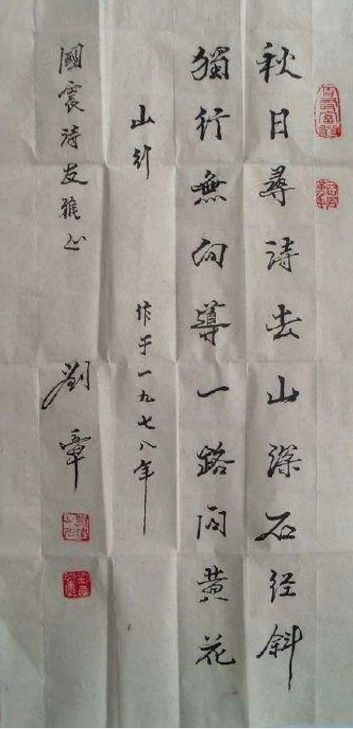 秋日尋詩去山深石经斜
獨行無向導一路问黄花
山行
作于一九七八年
國震诗友雅正
劉章